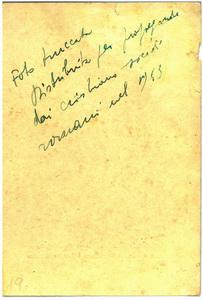 Foto truccata
distribuita per propaganda
dai cristiano sociali
romani nel 1953
19.